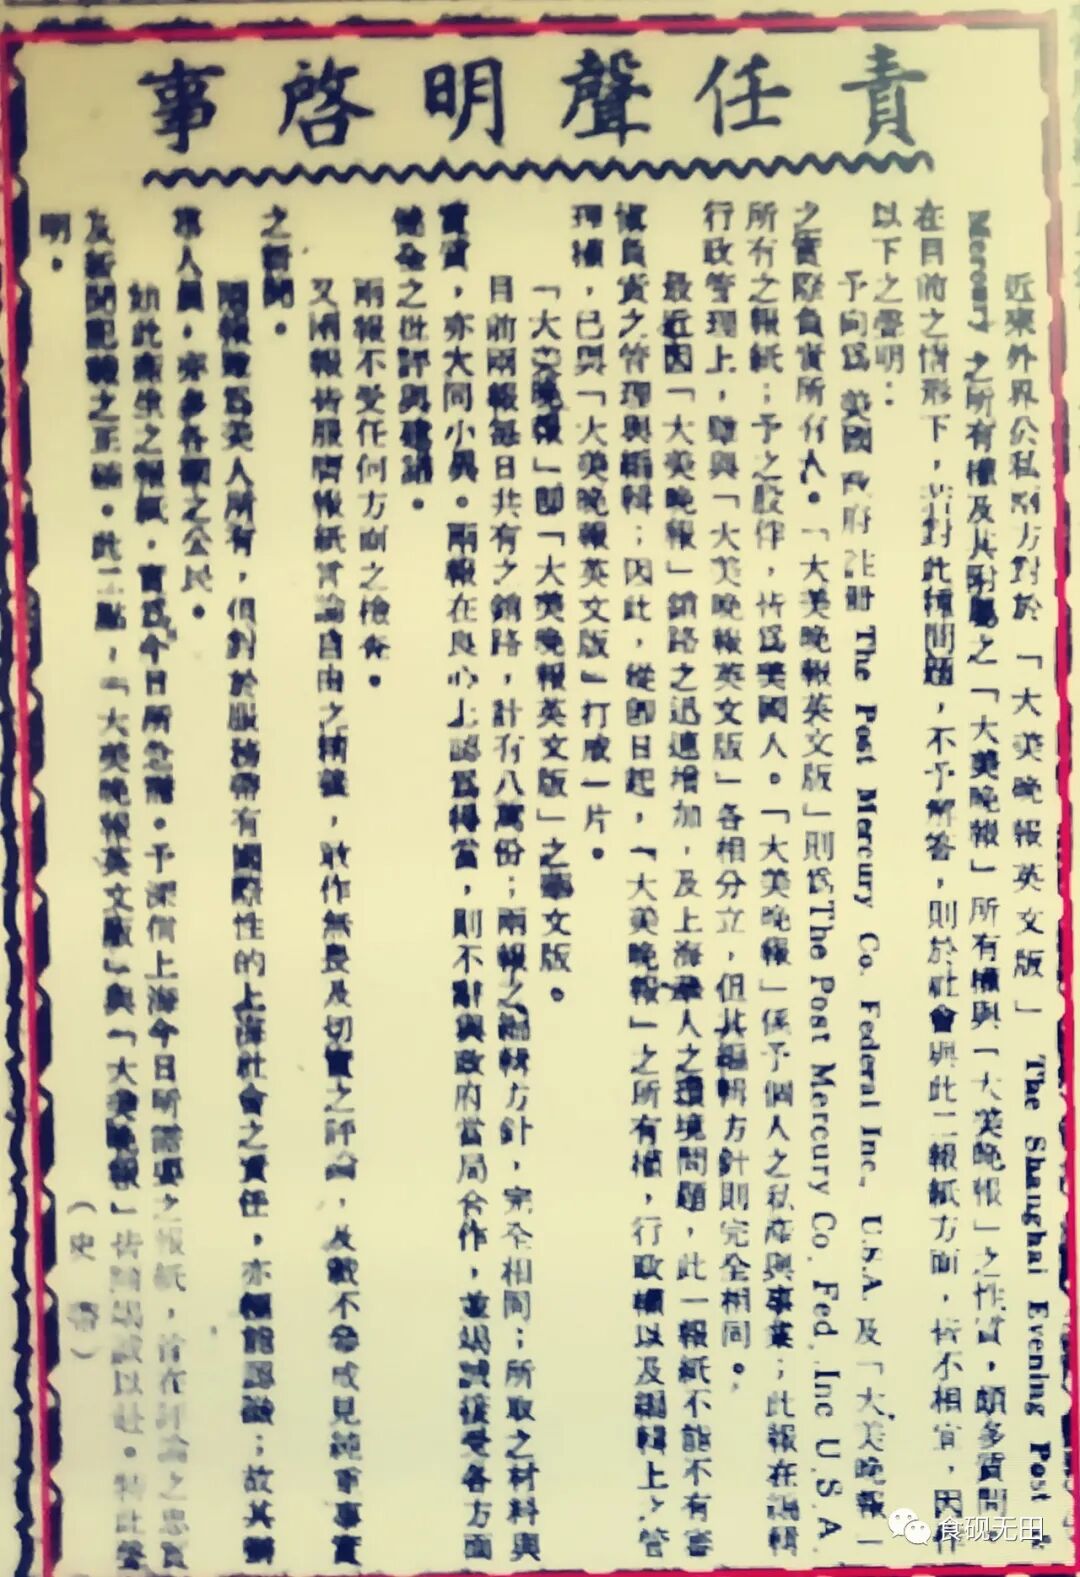 責任聲明啓事
近來外界公私兩方對於「大美晚報英文版」The Shanghai Evening Post &
Mercury 之所有權及其附屬之「大美晚報」所有權與「大美晚報」之性質,頗多質問。
在目前之情形下,若對此種問題,不予解答,則於社會與此二報紙方面,皆不相宜,因作
以下之聲明:
予向爲美國政府註冊 The Post Mercury Co. Federal Inc., U.S.A. 及「大美晚報」
之實際負責所有人。「大美晚報英文版」則爲 The Post Mercury Co. Fed. Inc U.S.A.
所有之報紙;予之股份,皆爲美國人。「大美晚報」係予個人之私產與事業;此報在編輯
行政管理上,雖與「大美晚報英文版」各相分立,但其編輯方針則完全相同。
最近因「大美晚報」銷路之迅速增加,及上海華人之環境問題,此一報紙不能不有審
愼負責之管理與編輯;因此,從卽日起,「大美晚報」之所有權,行政權以及編輯上之管
理權,已與「大美晚報英文版」打成一片。
「大美晚報」卽「大美晚報英文版」之華文版。
目前兩報每日共有之銷路,計有八萬份;兩報之編輯方針,完全相同;所取之材料與
實質,亦大同小異。兩報在良心上認爲得當,則不辭與政府當局合作,並竭誠接受各方面
健全之批評與建議。
兩報不受任何方面之檢查。
又兩報皆服膺報紙言論自由之精義,敢作無畏及切實之評論,及載不參成見純事實
之新聞。
兩報雖爲美人所有,但對於服務帶有國際性的上海社會之責任,亦極能認識;故其辦
事人員,亦多各國之公民。
如此產生之報紙,實爲今日所急需。予深信上海今日所需要之報紙,首在評論之忠實
及新聞記載之正確。此二點,「大美晚報英文版」與「大美晚報」皆願竭誠以赴。特此聲
明。
(史 )
食砚无田